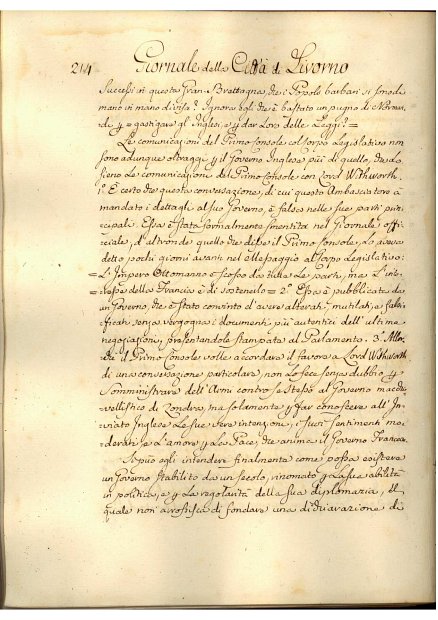 214 Giornale della Città di Livorno
Successi in questa Gran-Brettagna, che i Popoli barbari si sono di
mano in mano divisa? Ignora egli che è bastato un pugno di Norman
di p gastigare gl' Inglesi, e p dar loro delle Leggi? =
Le comunicazioni del Primo Console col Corpo Legislativo non
sono adunque oltraggi p il Governo Inglese più di quello, che lo
sieno le comunicazioni del Primo Console con Lord Withworth.
1.° È certo che questa conversazione, di cui questo Ambasciatore à
mandato i dettagli al suo Governo, è falsa nelle sue parti prin
cipali. Essa è stata formalmente smentita nel Giornale offi
ciale, d'altronde quello che disse il Primo Console, lo aveva
detto pochi giorni avanti nel Messaggio al Corpo Legislativo:
= L'Impero Ottomanno è scosso da tutte le parti, ma l'inte
= resse della Francia è di sostenerlo = 2.° Essa è pubblicata da
un Governo, che è stato convinto d'avere alterati, mutilati, e falsi
ficati senza vergogna i documenti più autentici dell'ultima
negoziazione, presentandole stampate al Parlamento. 3.° Allor
chè il Primo Console volle accordare il favore a Lord Withworth
di una conversazione particolare, non lo fece senza dubbio p
somministrare dell'Armi contro se stesso al Governo macchia
vellistico di Londra, ma solamente p far conoscere all'In
viato Inglese le sue vere intenzioni, i suoi sentimenti mo
derati, e l'amore p la Pace, che anima il Governo Francese.
Si può egli intendere finalmente come possa esistere
un Governo stabilito da un secolo, rinomato p la sua abilità
in politica, e p la regolarità della sua diplomazia, il
quale non arrossisca di fondare una dichiarazione di